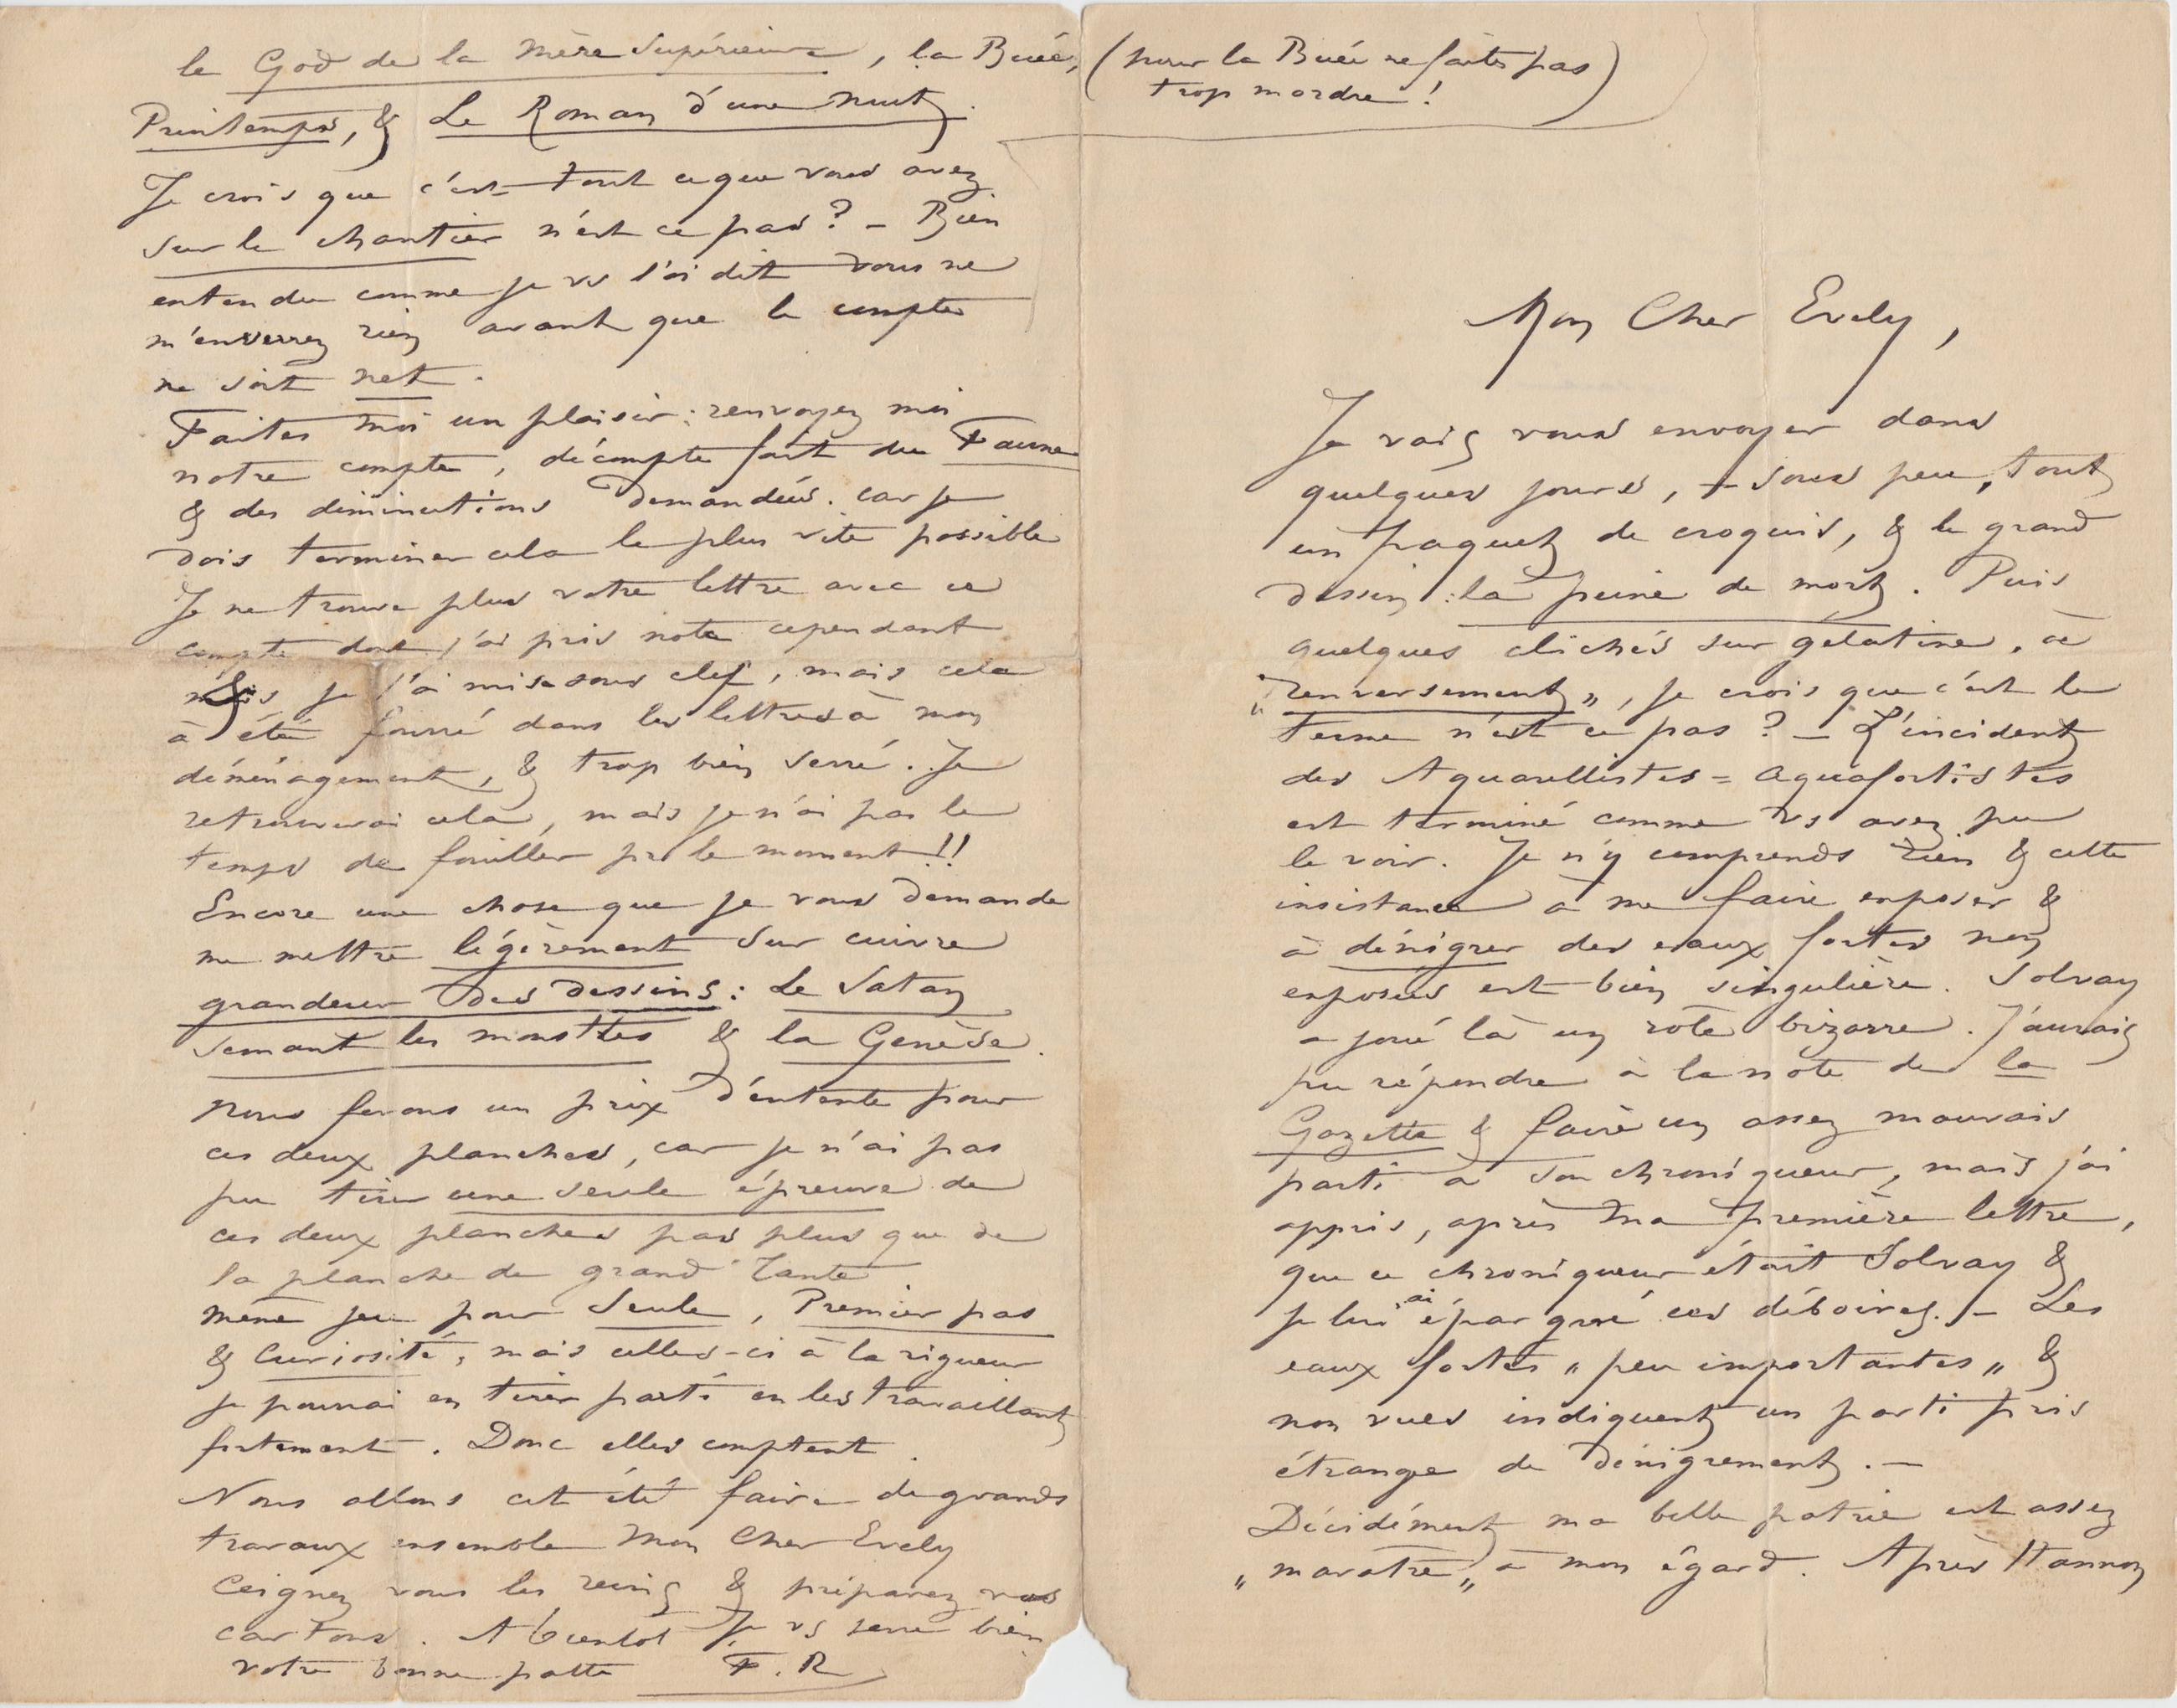 Mon Cher Evely,
Je vais vous envoyer dans
quelques jours, – sous peu, tout
un paquet de croquis, & le grand
dessin : la peine de mort. Puis
quelques clichés sur gélatine, à
„renversement„, je crois que c'est le
terme n'est ce pas ? – L'incident
des Aquarellistes = Aquafortistes
est terminé comme vs avez pu
le voir. Je n'y comprends rien & cette
insistance à me faire exposer &
à dénigrer des eaux fortes non
exposées est bien singulière. Solvay
a joué là un rôle bizarre. J'aurais
pu répondre à la note de la
Gazette & faire un assez mauvais
parti à son chroniqueur, mais j'ai
appris, après ma première lettre,
que ce chroniqueur était Solvay &
je lui ai épargné ces déboires. – Les
eaux fortes „peu importantes„ &
non vues indiquent un parti pris
étrange de dénigrement. –
Décidément ma belle patrie est assez
„maratre„ à mon égard. Après Hannon
le God de la Mère Supérieure, la Buée, (pour la Buée ne faites pas
trop mordre !)
Printemps, & Le Roman d'une nuit.
Je crois que c'est tout ce que vous avez
sur le chantier n'est ce pas ? – Bien
entendu comme je vs l'ai dit vous ne
m'enverrez rien avant que le compte
ne soit net.
Faites moi un plaisir : renvoyez moi
notre compte, décompte fait du Faune
& des diminutions demandées. Car je
dois terminer cela le plus vite possible
Je ne trouve plus votre lettre avec ce
compte dont j'ai pris note cependant
je l'ai mise sous clef, mais cela
à été fourré dans les lettres à mon
déménagement, & trop bien serré. Je
retrouverai cela, mais je n'ai pas le
temps de fouiller pr le moment !!
Encore une chose que je vous demande
me mettre légèrement sur cuivre
grandeur des dessins : Le Satan
semant les monstres & la Genèse.
Nous ferons un prix d'entente pour
ces deux planches, car je n'ai pas
pu tirer une seule épreuve de
ces deux planches pas plus que de
la planche de grand'Tante.
même jeu pour Seule, Premier pas
& Curiosité, mais celles-ci à la rigueur
je pourrai en tirer parti en les travaillant
fortement. Donc elles comptent.
Nous allons cet été faire de grands
travaux ensemble Mon Cher Evely
Ceignez vous les reins & préparez vos
cartons. A bientot Je vs serre bien
votre bonne patte F. R